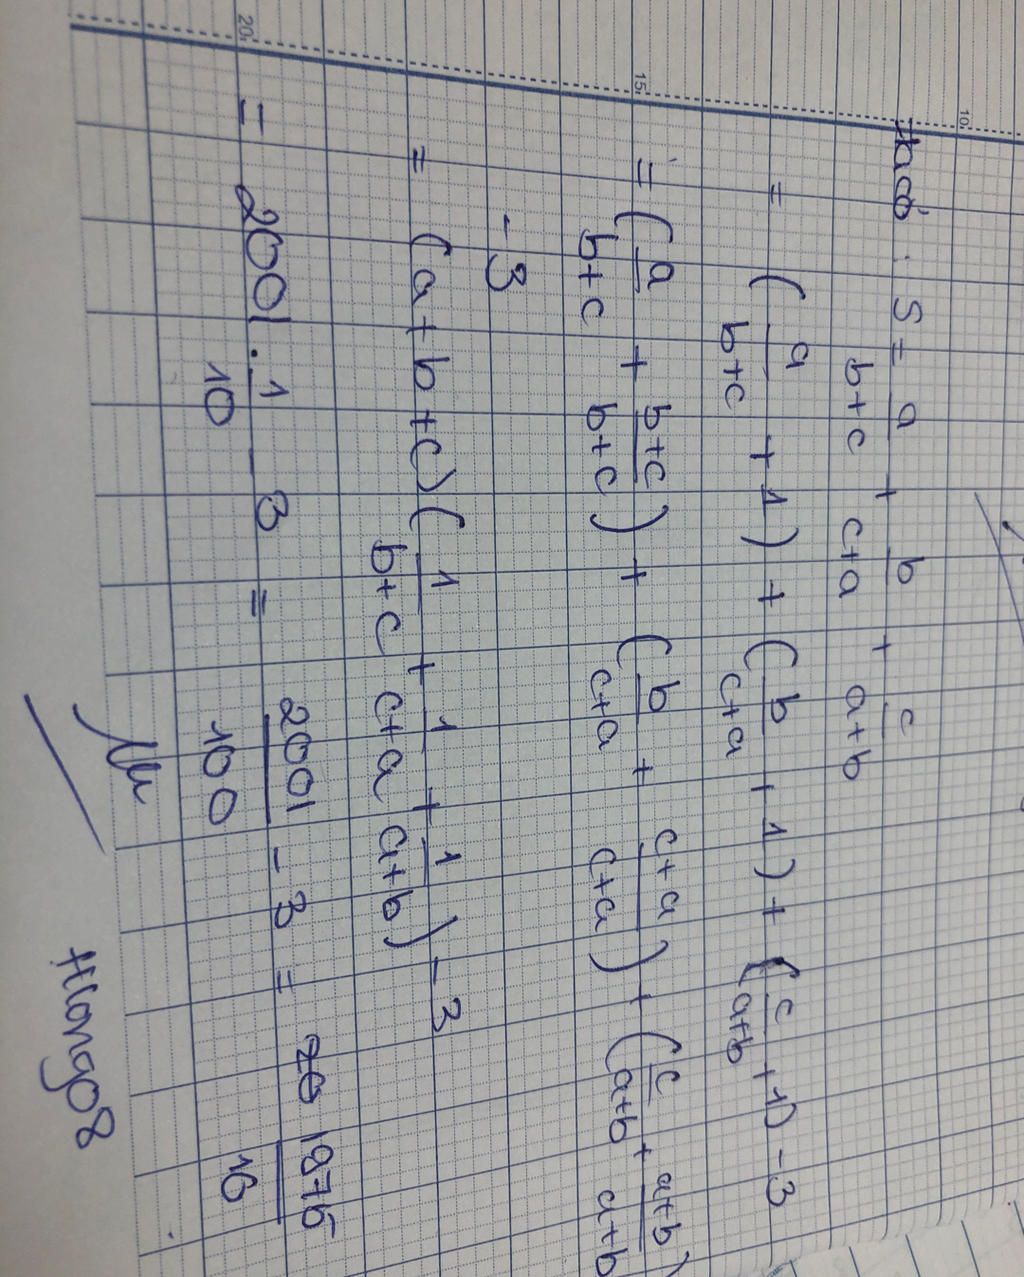 Ta có : S = a/(b+c) + b/(c+a) + c/(a+b)
= (a/(b+c) + 1) + (b/(c+a) + 1) + (c/(a+b) + 1) - 3
= (a/(b+c) + (b+c)/(b+c)) + (b/(c+a) + (c+a)/(c+a)) + (c/(a+b) + (a+b)/(a+b))
- 3
= (a+b+c)(1/(b+c) + 1/(c+a) + 1/(a+b)) - 3
= 2001 . 1/10 - 3 = 2001/100 - 3 =
Hlongo8
20
15
10